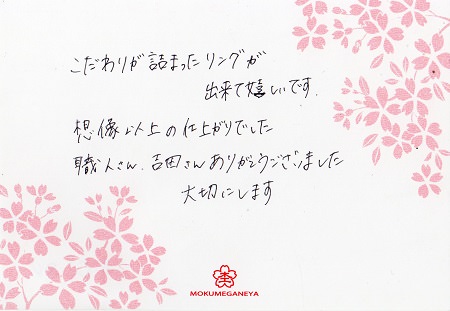 こだわりが詰まったリングが
出来て嬉しいです.
想像以上の仕上がりでした
職人さん、吉田さんありがとうございました
大切にします
MOKUMEGANEYA